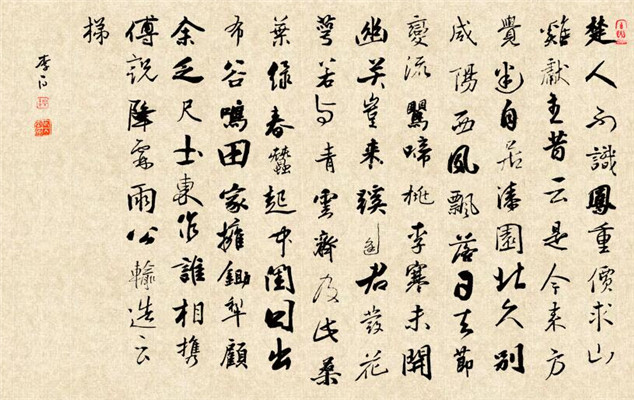 楚人不識鳳重價求山
雞獻主昔云是今来方
覺迷自居漆園北久别
咸陽西風飄落日去節
變流鶯啼桃李寒未開
幽关豈来蹊逢君發花
萼若与青雲齊及此桑
葉綠春蠶起中閨日出
布谷鳴田家擁鋤犁顧
余乏尺土東作誰相携
傅説降霖雨公輸造云
梯
李白